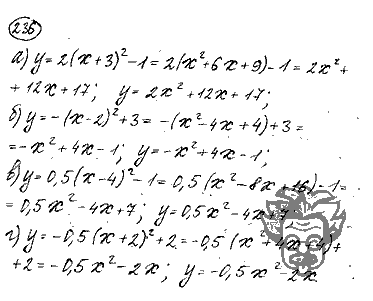 236
а) y = 2(x+3)² - 1 = 2(x² + 6x + 9) - 1 = 2x² +
+ 12x + 17; y = 2x² + 12x + 17;
б) y = -(x-2)² + 3 = -(x² - 4x + 4) + 3 =
= -x² + 4x - 1; y = -x² + 4x - 1;
в) y = 0,5(x-4)² - 1 = 0,5(x² - 8x + 16) - 1 =
= 0,5x² - 4x + 7; y = 0,5x² - 4x + 7
г) y = -0,5(x+2)² + 2 = -0,5(x² + 4x + 4) +
+ 2 = -0,5x² - 2x; y = -0,5x² - 2x